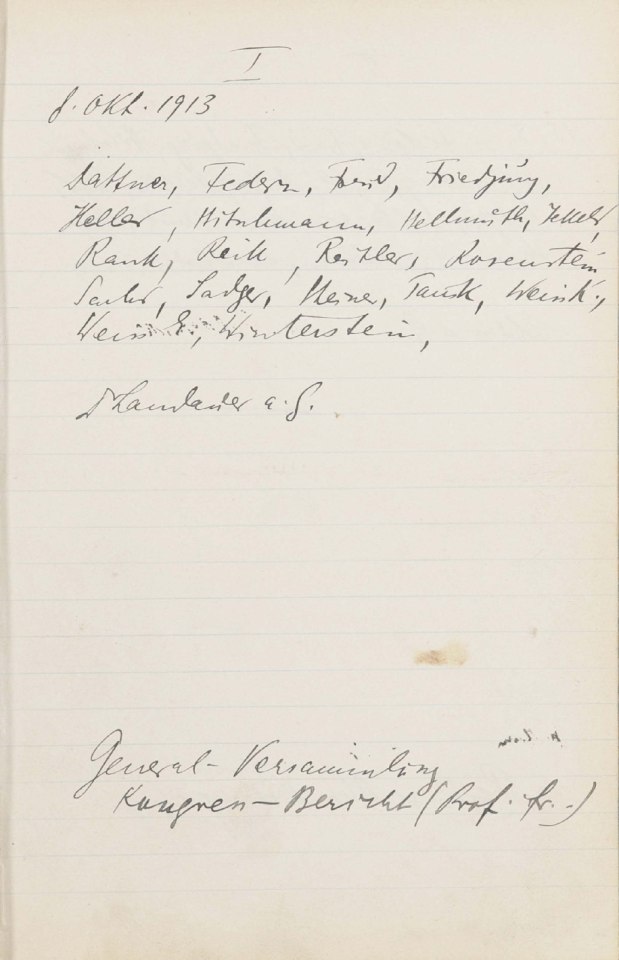 I
8. Okt. 1913
Dattner, Federn, Freud, Friedjung,
Heller, Hitschmann, Hellmuth, Jekels,
Rank, Reik, Reitler, Rosenstein
Sachs, Sadger, Steiner, Tausk, Weiss K.,
Weiss E., Winterstein,
Dr Landauer a. G.
General-Versammlung
Kongress-Bericht (Prof. Fr..)